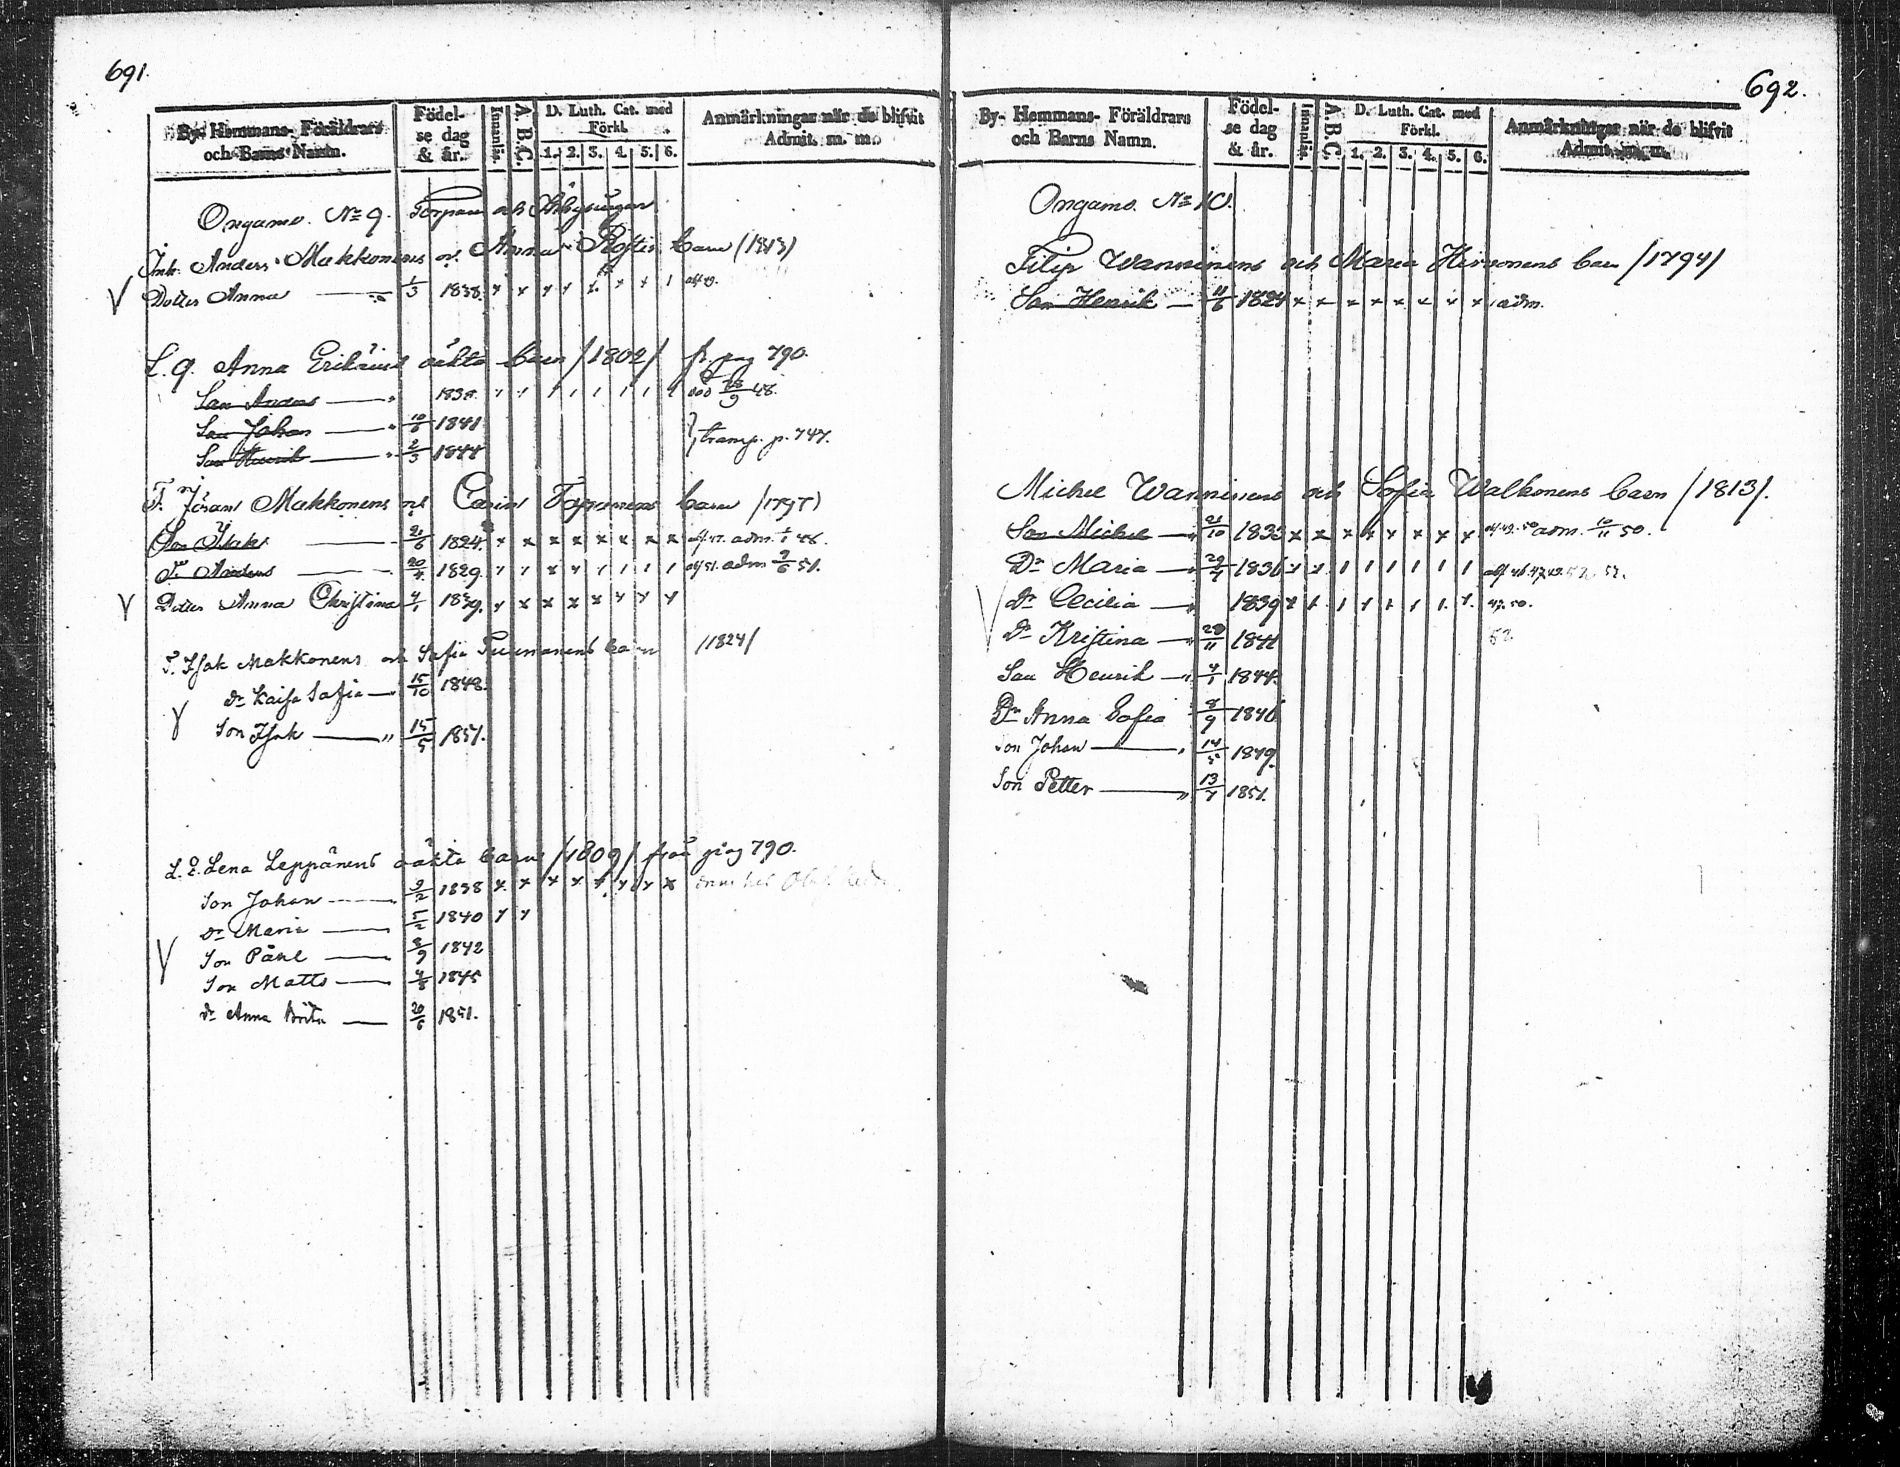 691.
By- Hemmans- Föräldrars och Barns Namn.
Födelse dag & år.
Innanläs.
A. B. C.
D. Luth. Cat. med Förkl.
1. 2. 3. 4. 5. 6.
Anmärkningar när de blifvit Admit. m. m.
Ongamo. No 9. Torpare och
Inh. Anders Makkonens och Anna barn /1813/
Dotter Anna 1/3 1838. x x x x x x x 1
L. q. Anna oäkta barn /1802/ fr. pag 790.
Son Anders 1838.
Son Johan 1841
Son Henrik 2/3 1844
transp. p. 747.
T. Jöran Makkonens och Carin barn /1797/
Son Isak 21/6 1824. x x x x x x x x adm. 48.
T. Anders 20/4 1829. adm 51.
Dotter Anna Christina 4/1 1839. x x x x x x x x
T. Isak Makkonens och Sofia barn /1824/
Dr Kaisa Sofia 15/10 1848.
Son Isak " 15/5 1851.
L. E. Lena Leppänens oäkta barn /1809/ från pag 790.
Son Johan 9/2 1838 x x x x x x x x
Dr Maria 5/2 1840 x x
Son Påhl 8/9 1842
Son Matts 1845
Dr Anna Brita 20/6 1851.
692.
By- Hemmans- Föräldrars och Barns Namn.
Födelse dag & år.
Innanläs.
A. B. C.
D. Luth. Cat. med Förkl.
1. 2. 3. 4. 5. 6.
Anmärkningar när de blifvit Admit. m. m.
Ongamo. No 10.
Filip Wanninens och Maria Hirvonens barn /1794/
Son Henrik 11/6 1824 x x x x x x x x adm.
Michel Wanninens och Sofia Walkonens barn /1813/.
Son Michel 21/10 1833 x x x x x x x x adm. 10/11 50.
Dr Maria 29/7 1836 x x 1 1 1 1 1 1
Dr Cecilia 1839 47. 50.
Dr Kristina 28/11 1841 52
Son Henrik 4/1 1844.
Dr Anna Sofia 8/9 1846
Son Johan 14/5 1849.
Son Petter " 13/7 1851.